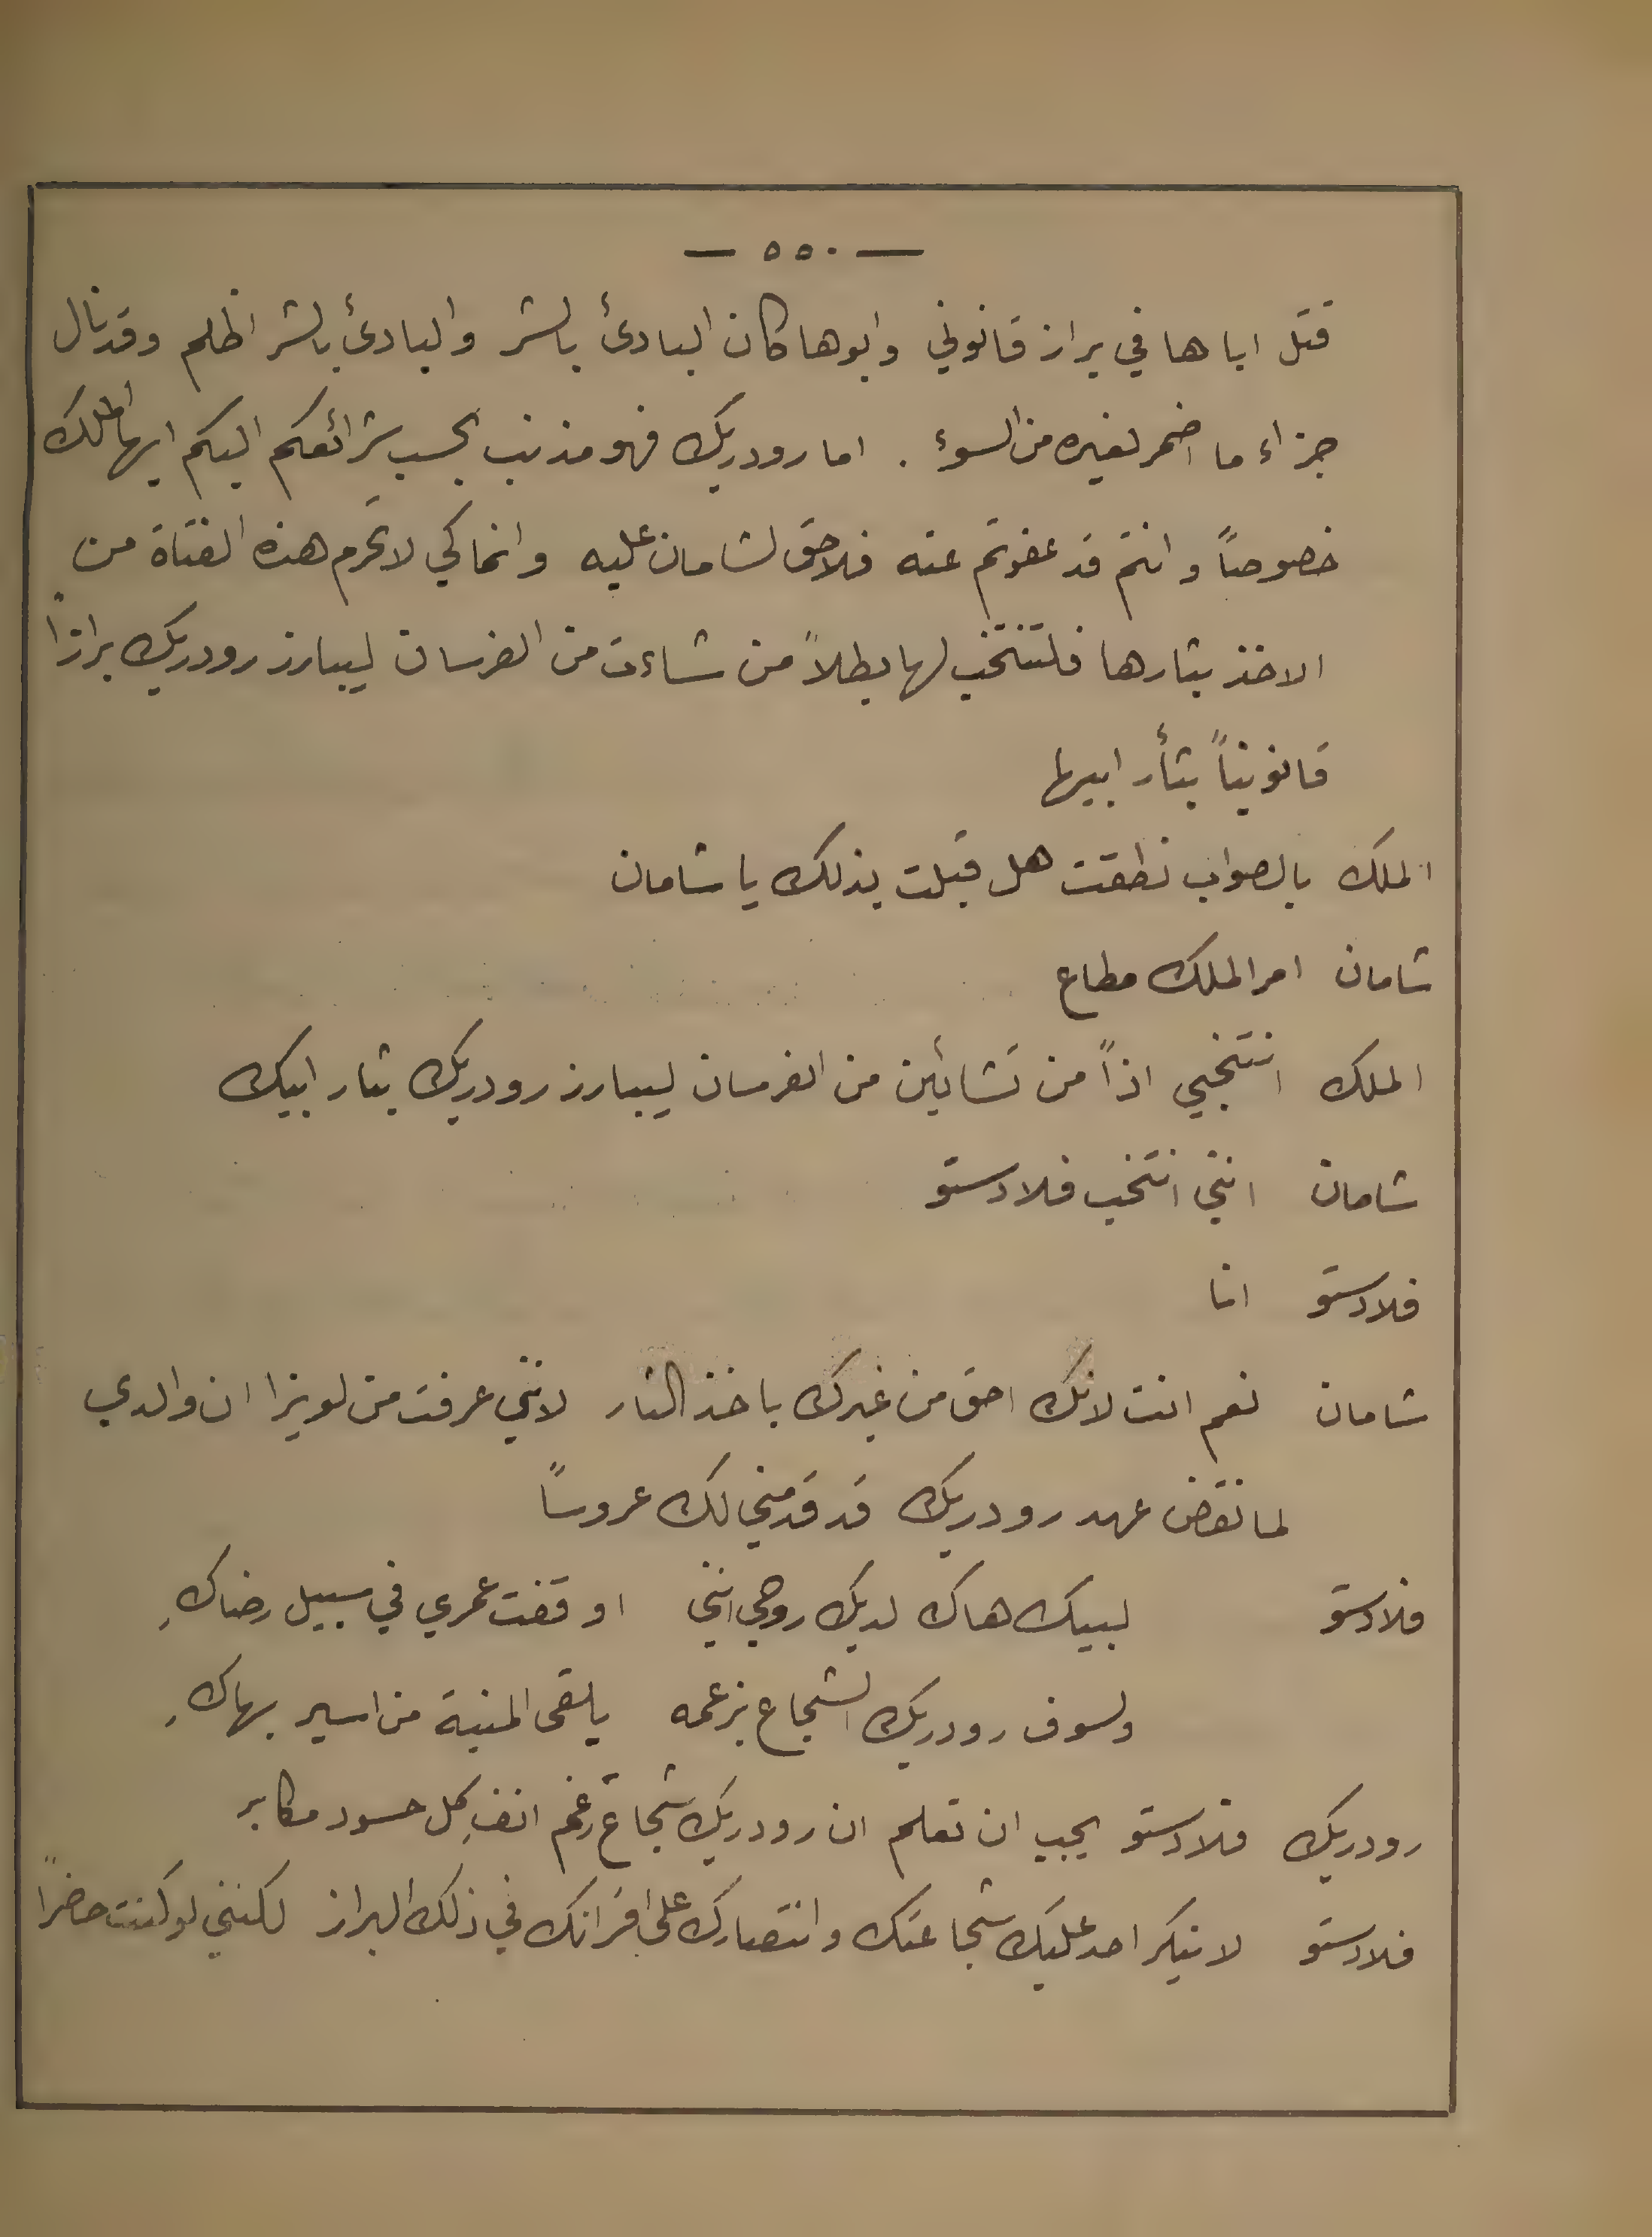 — ٥٥٠ —
قتل اباها في براز قانوني وابوها كان البادئ بالشر والبادئ بالشر اظلم وقد نال
جزاء ما اضمر لغيره من السوء . اما رودريك فهو مذنب بحسب شرائعكم اليكم ايها الملك
خصوصاً وانتم قد عفوتم عنه فلا حق لشامان عليه وانما كي لا تحرم هذه الفتاة من
الاخذ بثارها فلتنتخب لها بطلاً من شاءت من الفرسان ليبارز رودريك برازاً
قانونياً بثأر ابيها
الملك بالصواب نطقت هل قبلت بذلك يا شامان
شامان امر الملك مطاع
الملك انتخبي اذاً من تشائين من الفرسان ليبارز رودريك بثار ابيك
شامان انني انتخب فلادستو
فلادستو انا
شامان نعم انت لانك احق من غيرك باخذ الثار لانني عرفت من لويزا ان والدي
لما نقض عهد رودريك قد قدمني لك عروساً
فلادستو لبيك هاك لديك روحي انني اوقفت عمري في سبيل رضاكِ
ولسوف رودريك الشجاع بزعمه يلقى المنية من اسير بهاكِ
رودريك فلادستو يجب ان تعلم ان رودريك شجاع رغم انف كل حسود مكابر
فلادستو لا ينكر احد عليك شجاعتك وانتصارك على اقرانك في ذلك البراز لكنني لو كنت حاضراً